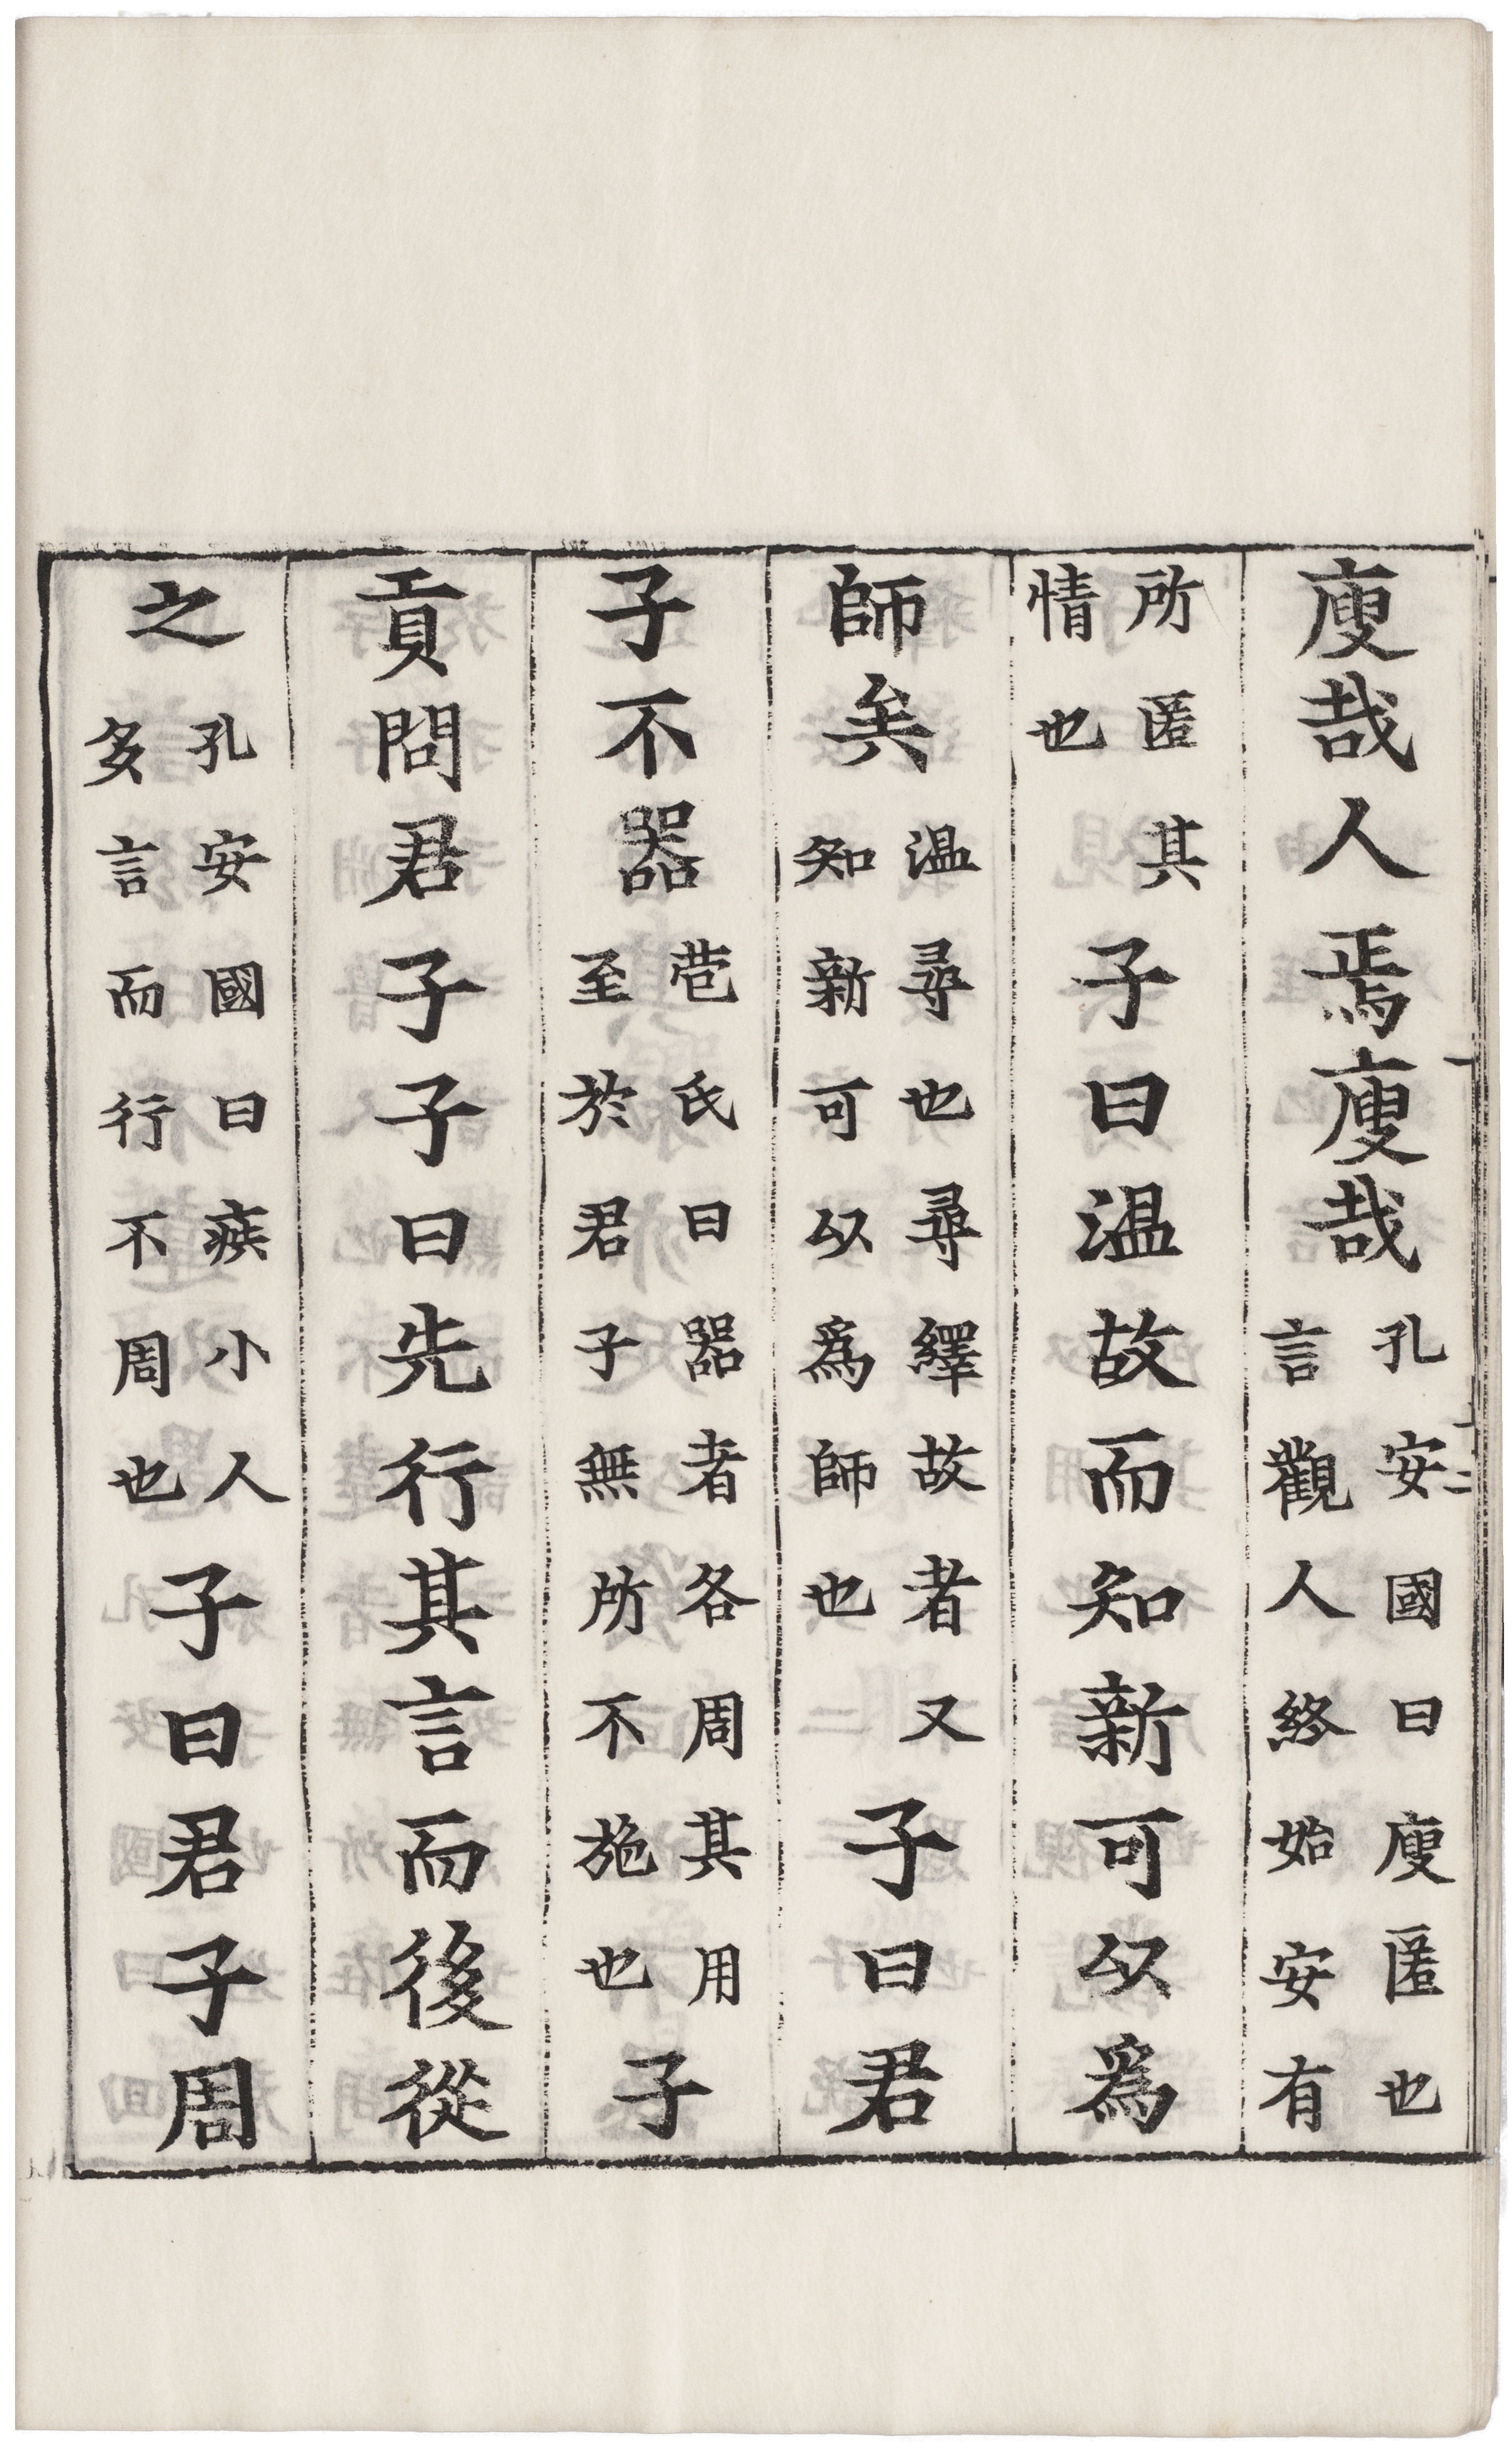 廋哉人焉廋哉孔安國曰廋匿也言觀人終始安有
所匿其情也子曰温故而知新可以爲
師矣温尋也尋繹故者又知新可以爲師也子曰君
子不器苞氏曰器者各周其用至於君子無所不施也子
貢問君子子曰先行其言而後從
之孔安國曰疾小人多言而行不周也子曰君子周